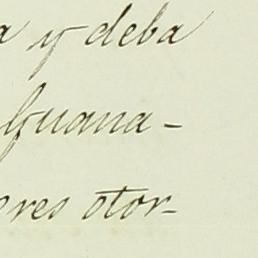 a y deba
guana-
eres otor-